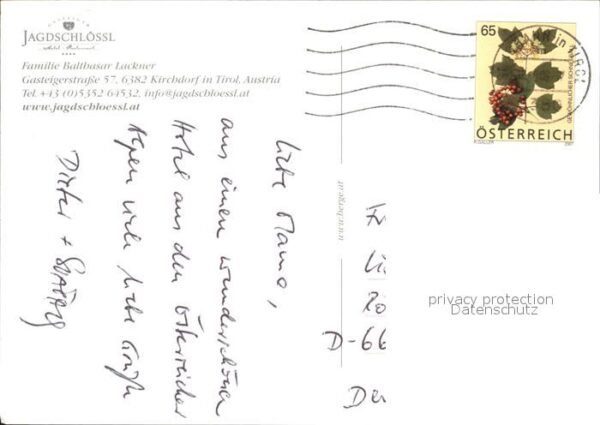 JAGDSCHLÖSSL
Familie Balthasar Lackner
Gasteigerstraße 57, 6382 Kirchdorf in Tirol, Austria
Tel. +43 (0)5352 64532, info@jagdschloessl.at
www.jagdschloessl.at
65
ÖSTERREICH
2007
Liebe Mama,
aus einen wunderschönen
Hotel aus den Österreicher
Alpen viele liebe Grüße
Dieter +
D-66
privacy protection
Datenschutz